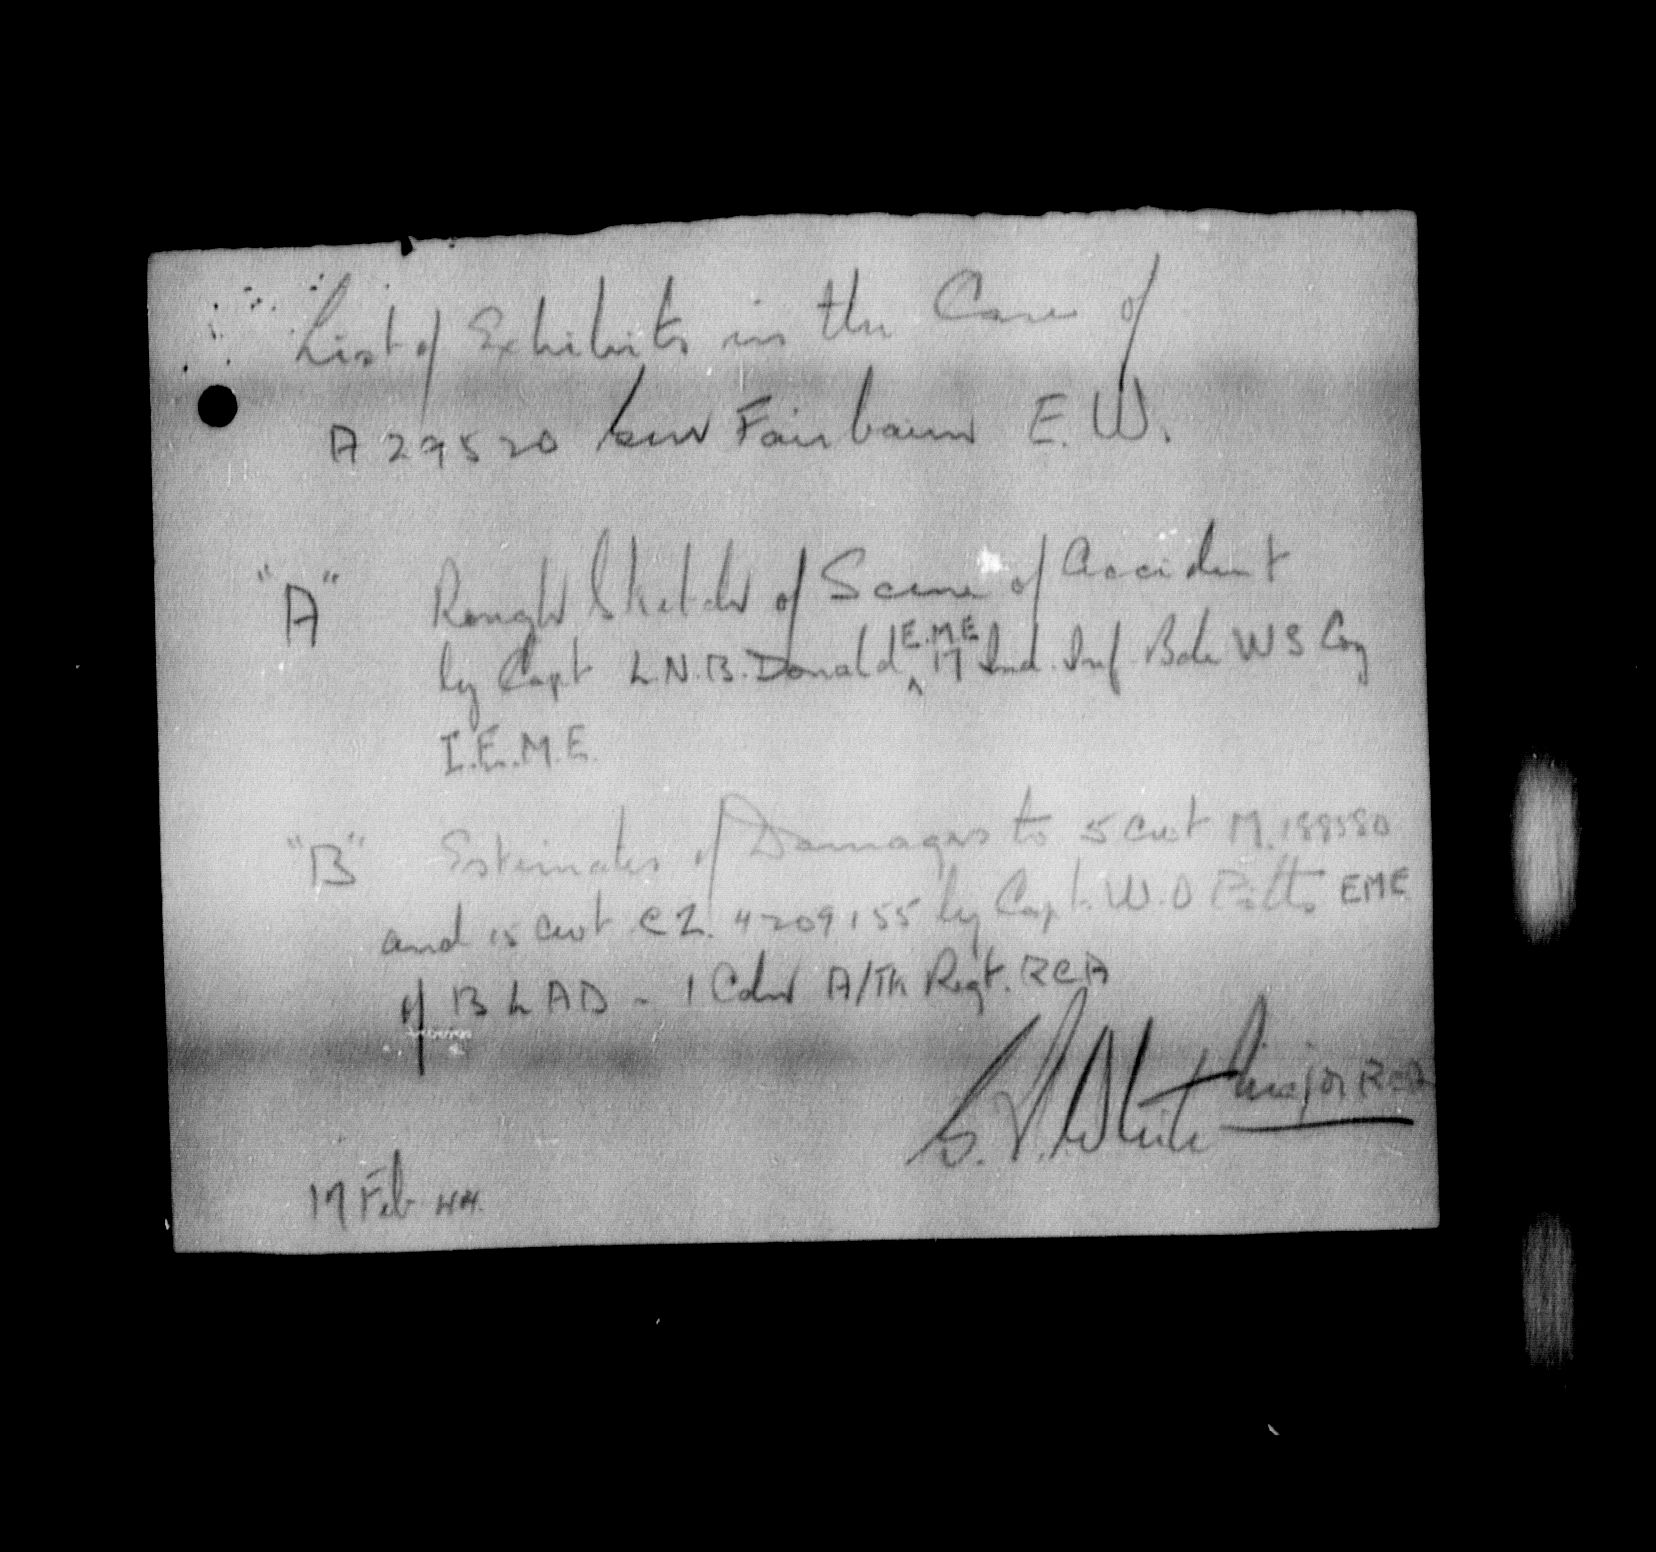 List of Exhibits in the Case of
A 29520 Gnr Fairbairn E.W.
"A" Rough Sketch of Scene of Accident
by Capt L.N.B. Donald E.M.E 17 Ind. Inf. Bde W S Coy
I.E.M.E.
"B" Estimates of Damages to 5 cwt M.
and 15 cwt CZ. 4209155 by Capt. W.D EME
of B LAD - 1 Cdn A/Tk Regt. RCA
White Major RCA
17 Feb 44.